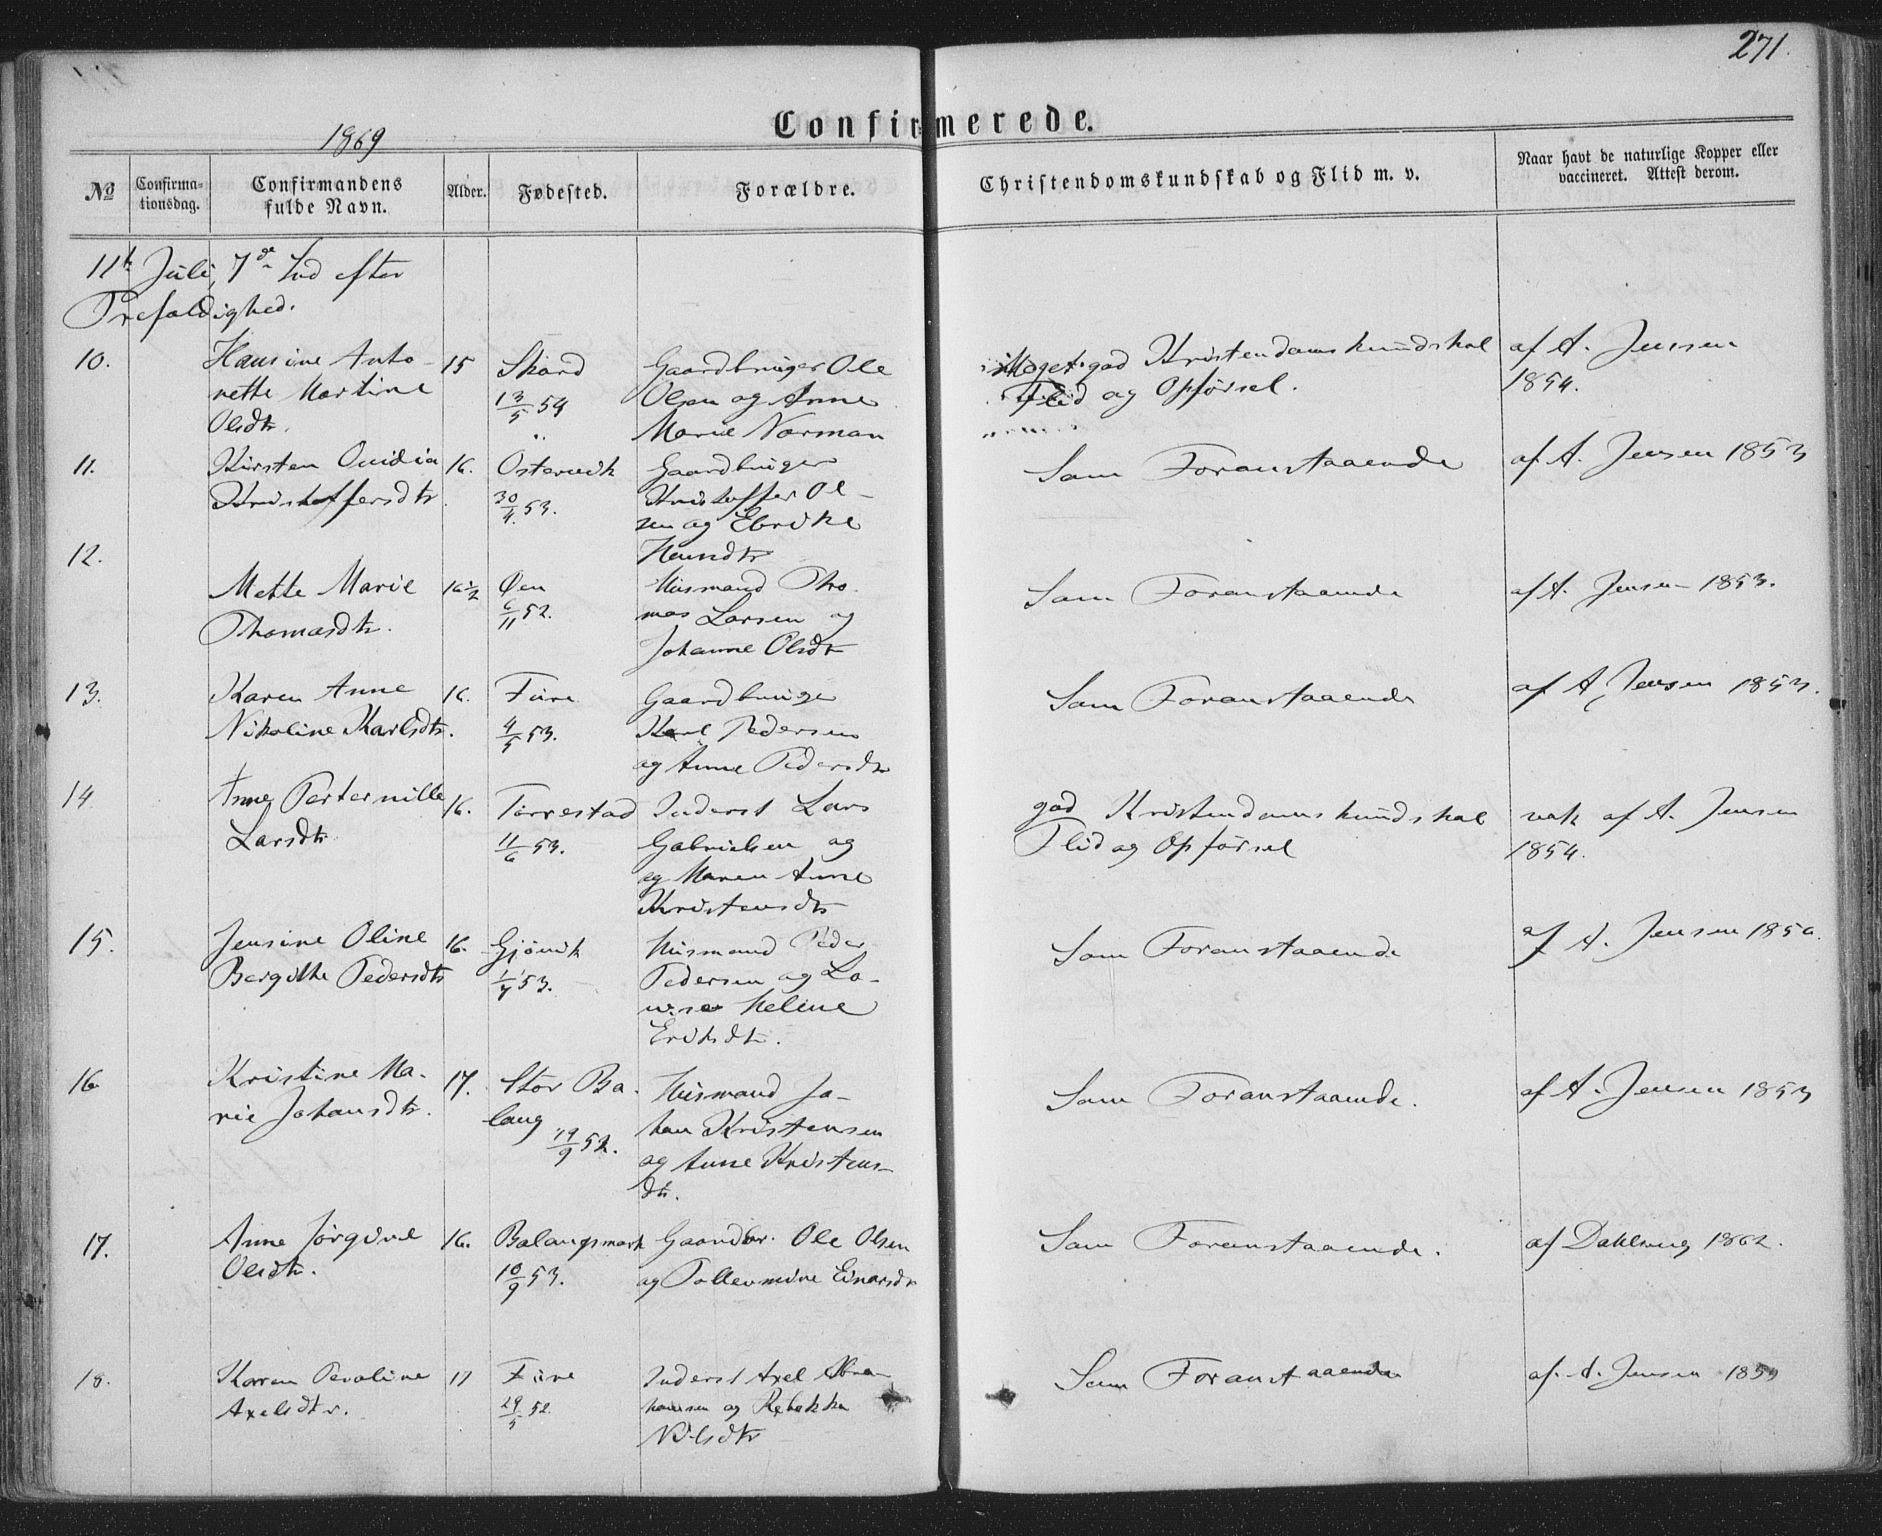 271.
Confirmerede.
1869
No
Confirma-
tionsdag.
Confirmandens
fulde Navn.
Alder.
Fødested.
Forældre.
Christendomskundskab og Flid m. v.
Naar havt de naturlige Kopper eller
vaccineret. Attest derom.
11te Juli, 7de Snd efter
Trefoldighed.
10.
Hansine Anto-
nette Martine
Olsdtr.
15
Skard
13/5 54
Gaardbruger Ole
Olsen og Anne
Marie Norman
Meget god Kristendomskundskab
Flid og Opførsel.
af A. Jensen
1854.
11.
Kirsten Ovidia
Kristoffersdtr
16.
Ostervik
30/4. 53.
Gaardbruger
Kristoffer Ol-
sen og
Som Foranstaaende
af A. Jensen 1853
12.
Mette Marie
Thomasdtr.
16½
Øen
6/11 52.
Husmand Tho-
mas Larsen og
Johanne Olsdtr
Som Foranstaaende
af A. Jensen 1853.
13.
Karen Anne
Nikoline Karlsdtr.
16.
Fure
4/5 53.
Gaardbruger
Karl Pedersen
og Anne Pedersdtr
Som Foranstaaende
af A. Jensen 1853.
14
Anne Perternille
Larsdtr
16.
Torrestad
11/6 53.
Inderst Lars
Gabrielsen og
og Maren Anne
Kristensdtr
god Kristendomskundskab
Flid og Opførsel
vak af A. Jensen
1854.
15.
Jensine Oline
Bergitte Pedersdtr
16.
Gjövik
1/7 53.
Husmand Peder
Pedersen og Lo-
vise Heline
Eriksdtr.
Som Foranstaaende
af A. Jensen
16
Kristine Ma-
rie Johansdtr.
17.
Stor Ba-
lang
19/9 52.
Husmand Jo-
han Kristensen
og Anne Kristens-
dtr.
Som Foranstaaende.
af A. Jensen 1853
17.
Anne Jørgine
Olsdtr.
16.
Balangsmark
10/9 53.
Gaardbr. Ole Olsen
og Tollevmine Einarsdtr
Som Foranstaaende.
af Dahlming 1862.
18.
Karen Peroline
Axelsdtr.
17
Fure
29/5 52.
Inderst Axel Abra-
hamsen og Rebekka
Nilsdtr
Som Foranstaaende
af A. Jensen 1853